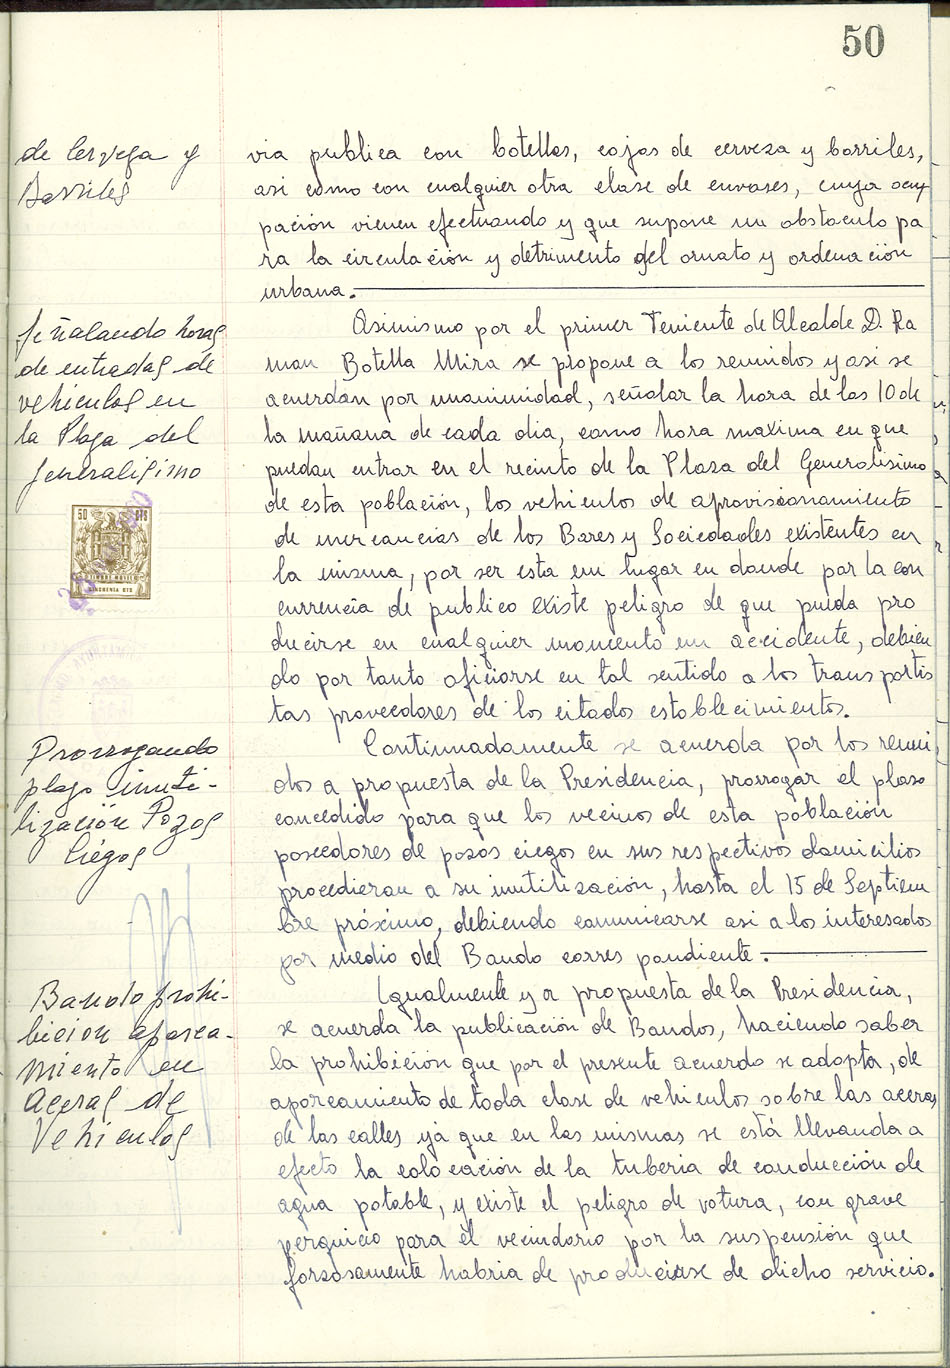 50
de Cerveza y
Barriles
via publica con botellas, cajas de cerveza y barriles,
asi como con cualquier otra clase de envases, cuya ocu
pación vienen efectuando y que supone un obstaculo pa
ra la circulación y detrimento del ornato y ordenación
urbana.
Señalando horas
de entradas de
vehiculos en
la Plaza del
Generalisimo
Asimismo por el primer Teniente de Alcalde D. Ra
mon Botella Mira se propone a los reunidos y asi se
acuerdan por unanimidad, señalar la hora de las 10 de
la mañana de cada dia, como hora maxima en que
puedan entrar en el recinto de la Plaza del Generalisimo
de esta población, los vehiculos de aprovisionamiento
de mercancias de los Bares y Sociedades existentes en
la misma, por ser esta un lugar en donde por la con
currencia de publico existe peligro de que pueda pro
ducirse en cualquier momento un accidente, debien
do por tanto oficiarse en tal sentido a los transportis
tas proveedores de los citados establecimientos.
50 PTS
TIMBRE MOVIL
CINCUENTA CTS
Prorrogando
plazo inuti-
lización Pozos
Ciégos
Continuadamente se acuerda por los reuni
dos a propuesta de la Presidencia, prorrogar el plaso
concedido para que los vecinos de esta población
poseedores de posos ciegos en sus respectivos domicilios
procedieran a su inutilización, hasta el 15 de Septiem
bre próximo, debiendo comunicarse asi a los interesados
por medio del Bando correspondiente.
Bando prohi-
bicion aparca-
miento en
aceras de
Vehiculos
Igualmente y a propuesta de la Presidencia,
se acuerda la publicación de Bandos, haciendo saber
la prohibición que por el presente acuerdo se adopta, de
aparcamiento de toda clase de vehiculos sobre las aceras
de las calles ya que en las mismas se está llevando a
efecto la colocación de la tuberia de conducción de
agua potable, y existe el peligro de rotura, con grave
perguicio para el vecindario por la suspensión que
forsosamente habria de producirse de dicho servicio.